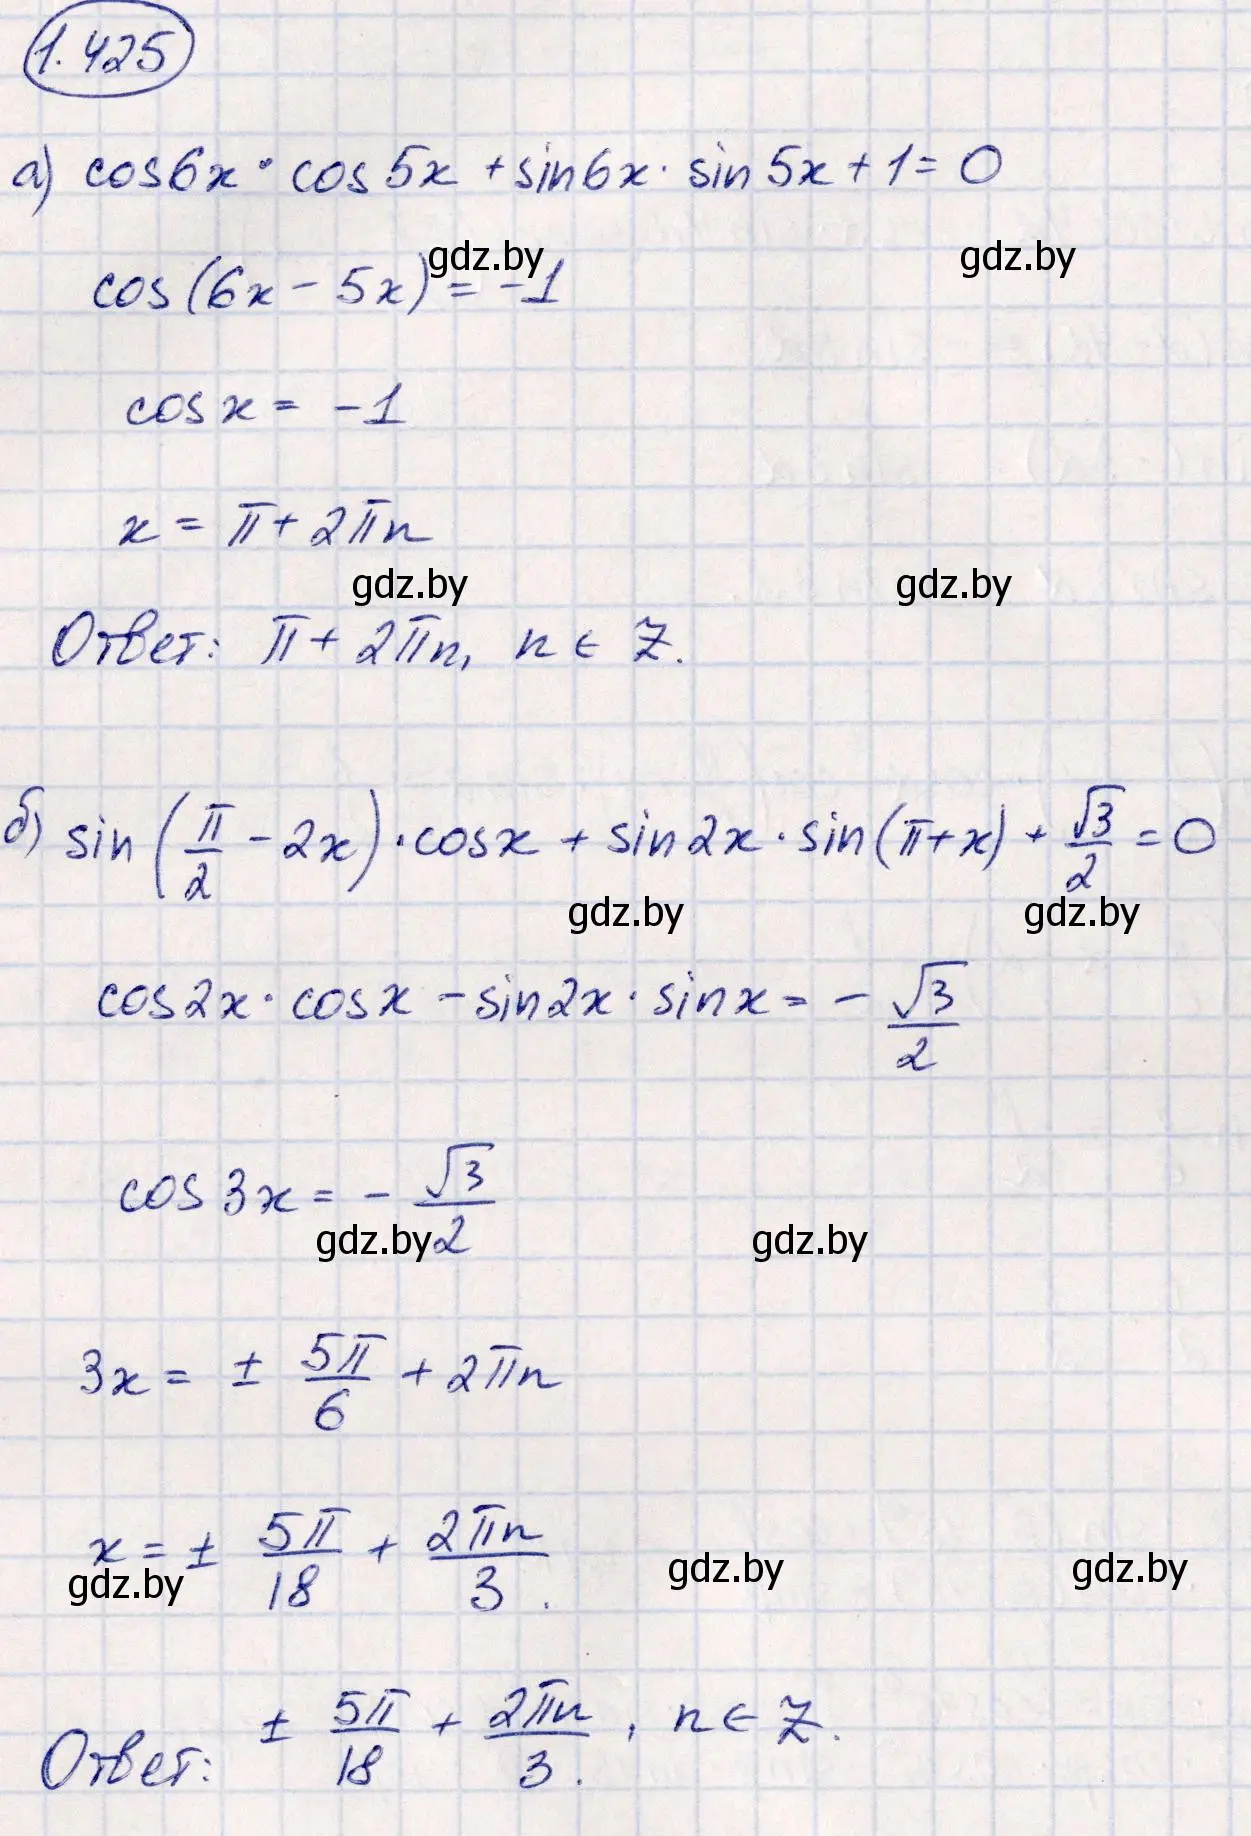 1.425
а) cos6x · cos5x + sin6x · sin5x + 1 = 0
gdz.by gdz.by
cos(6x - 5x) = -1
cosx = -1
x = π + 2πn
gdz.by gdz.by
Ответ: π + 2πn, n ∈ Z.
б) sin(π/2 - 2x) · cosx + sin2x · sin(π+x) + √3/2 = 0
gdz.by gdz.by
cos2x · cosx - sin2x · sinx = - √3/2
cos3x = - √3/2
gdz.by gdz.by
3x = ± 5π/6 + 2πn
x = ± 5π/18 + 2πn/3.
gdz.by gdz.by gdz.by
Ответ: ± 5π/18 + 2πn/3., n ∈ Z.